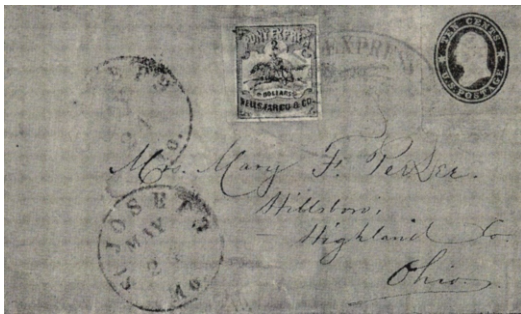 PONY EXPRESS
2
DOLLARS
WELLS, FARGO & CO.
EXPRESS
TEN CENTS
U.S. POSTAGE
ST JOSEPH
MAY
2
MO
Mrs. Mary F.
Hillsboro,
Highland Co
Ohio.